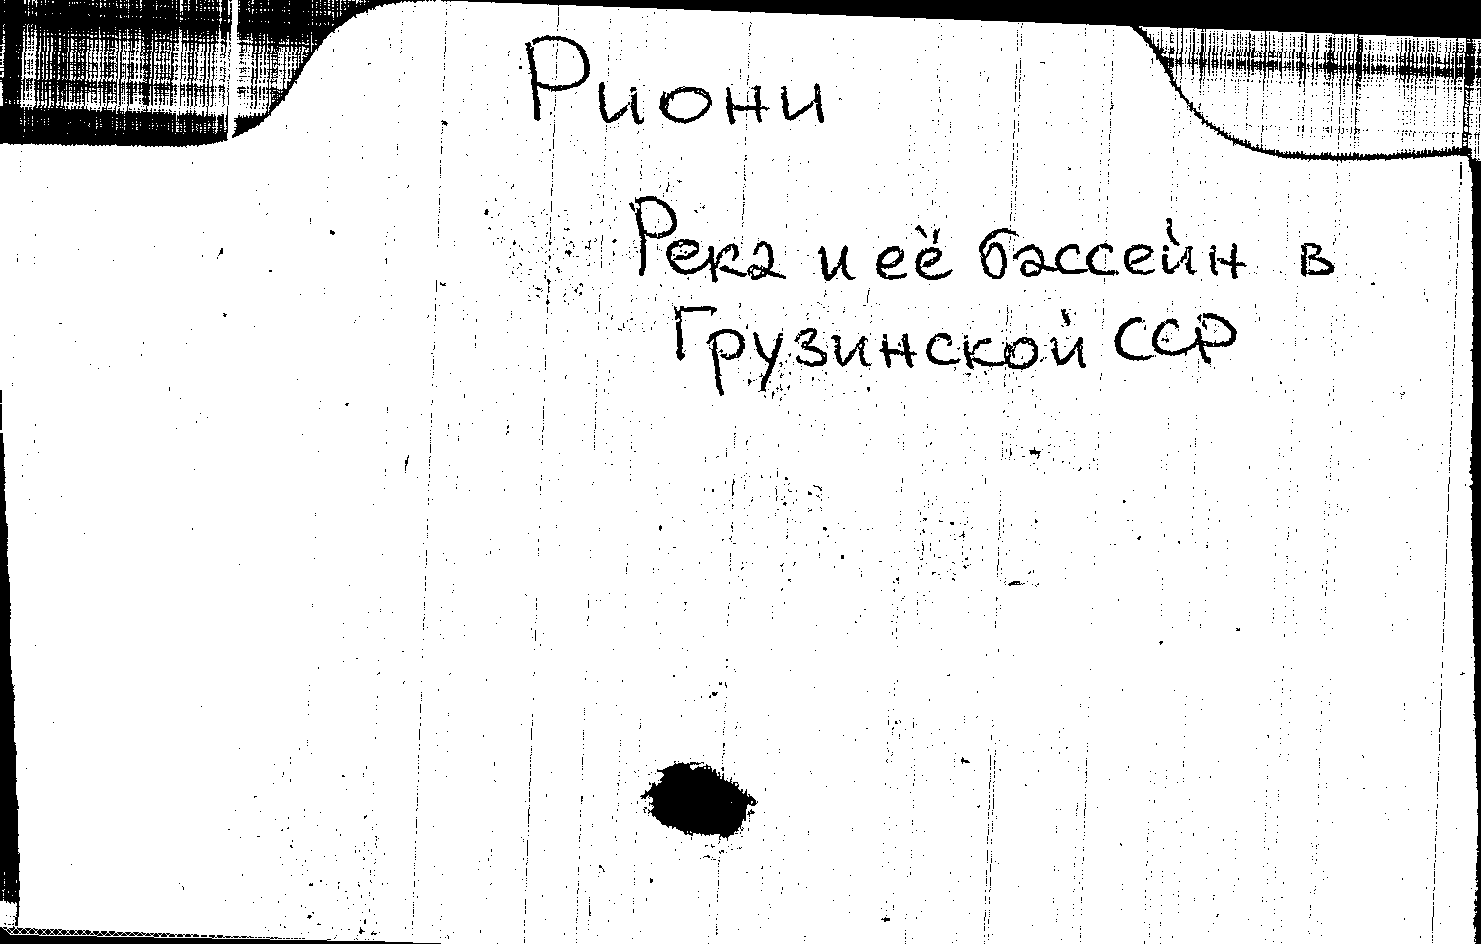 Риони
Река и её бассейн в
Грузинской ССР